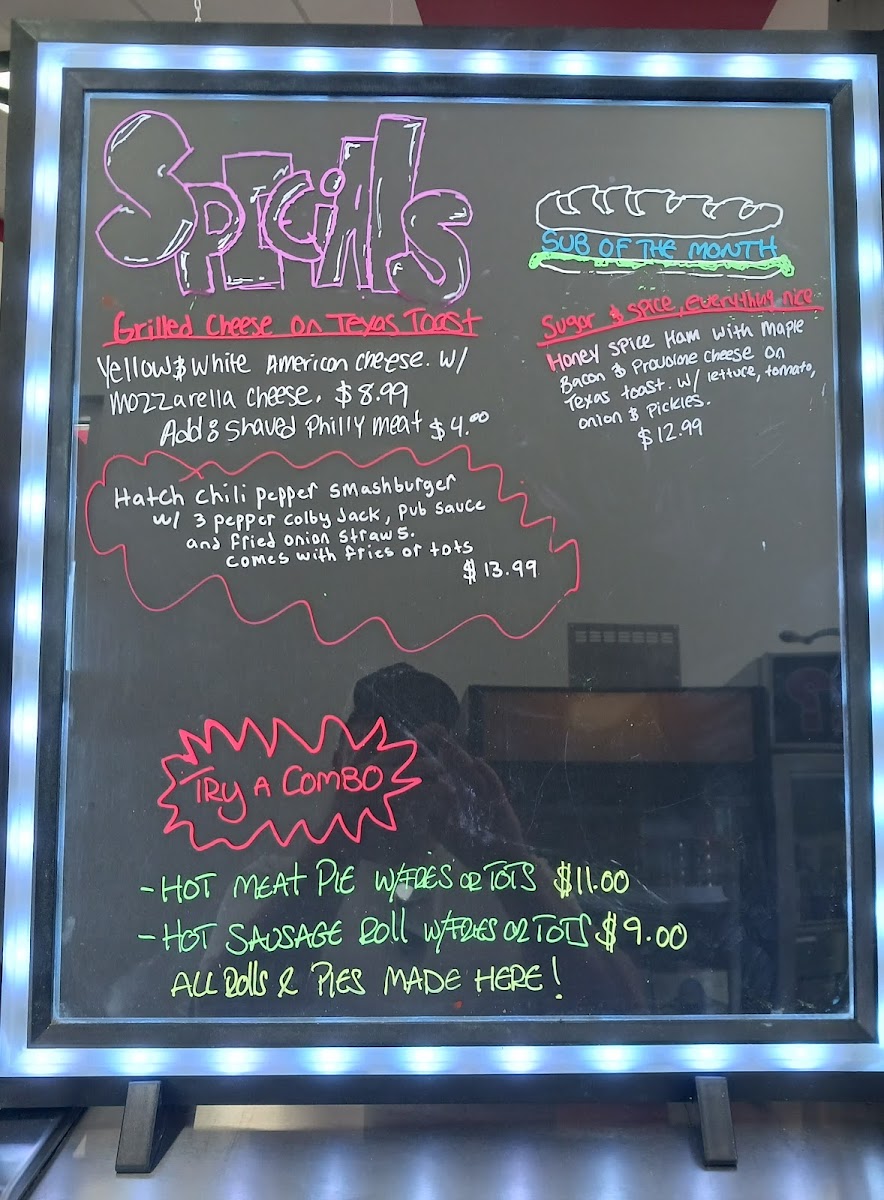 SPECIALS
Grilled Cheese on Texas Toast
Yellow & White American Cheese. w/
Mozzarella Cheese. $8.99
Add: Shaved Philly meat $4.00
Hatch Chili Pepper Smashburger
w/ 3 pepper Colby Jack, Pub sauce
and fried onion straws.
Comes with fries or tots
$13.99
SUB OF THE MONTH
Sugar & spice, everything nice
Honey Spice Ham with Maple
Bacon & Provolone Cheese on
Texas toast. w/ lettuce, tomato,
onion & Pickles.
$12.99
TRY A COMBO
- HOT MEAT PIE W/FRIES OR TOTS $11.00
- HOT SAUSAGE ROLL W/FRIES OR TOTS $9.00
ALL ROLLS & PIES MADE HERE!